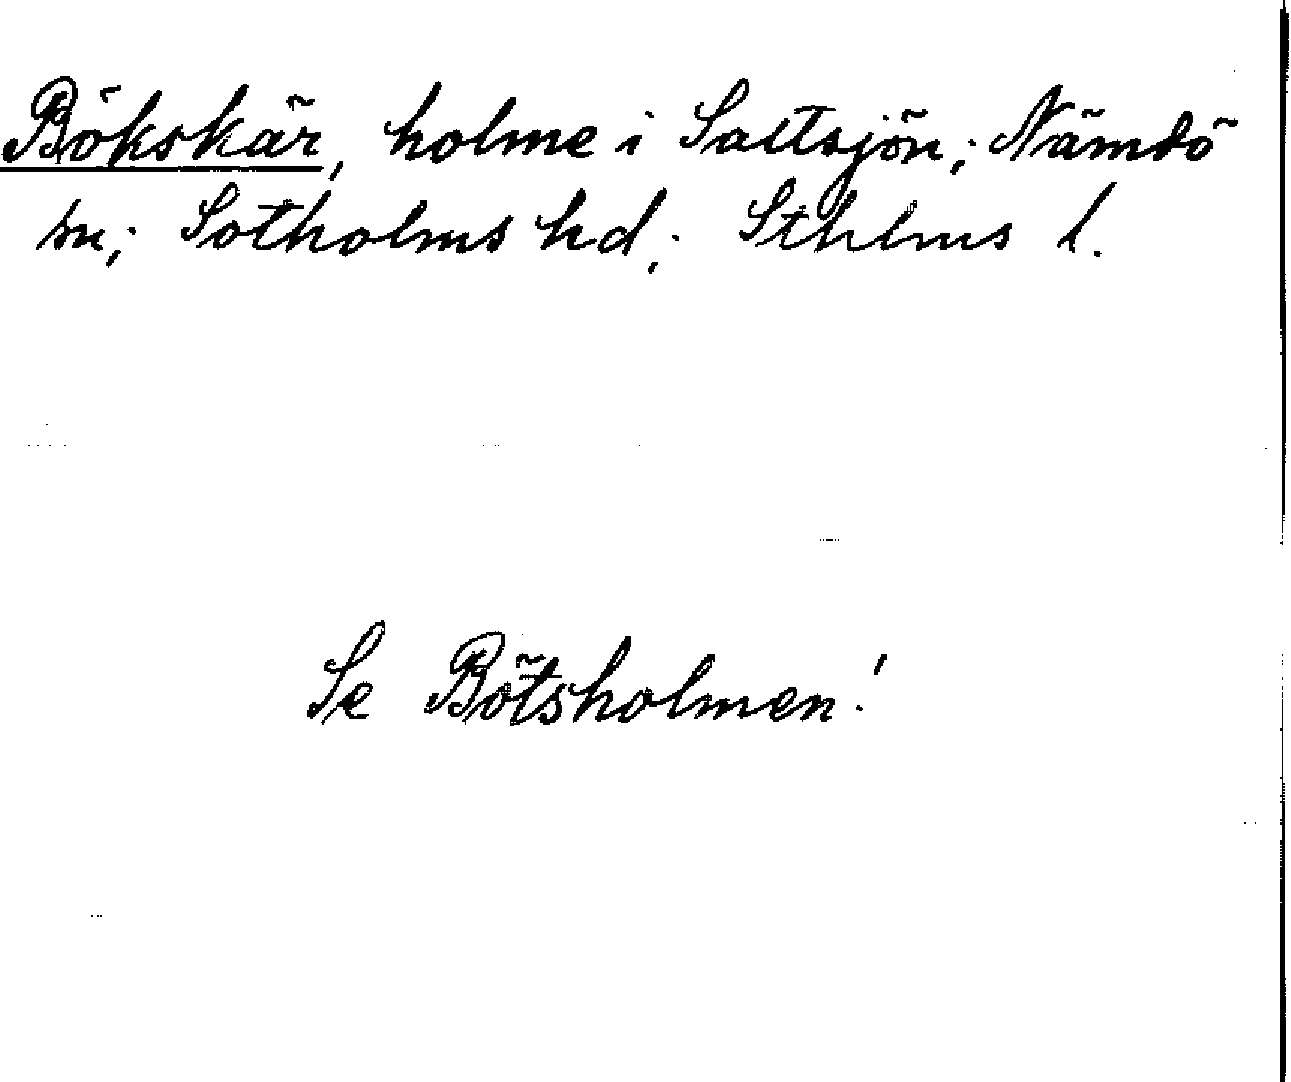 Bökskär, holme i Saltsjön; Nämdö
sn; Sotholms hd; Sthlms l.
Se Bötsholmen!